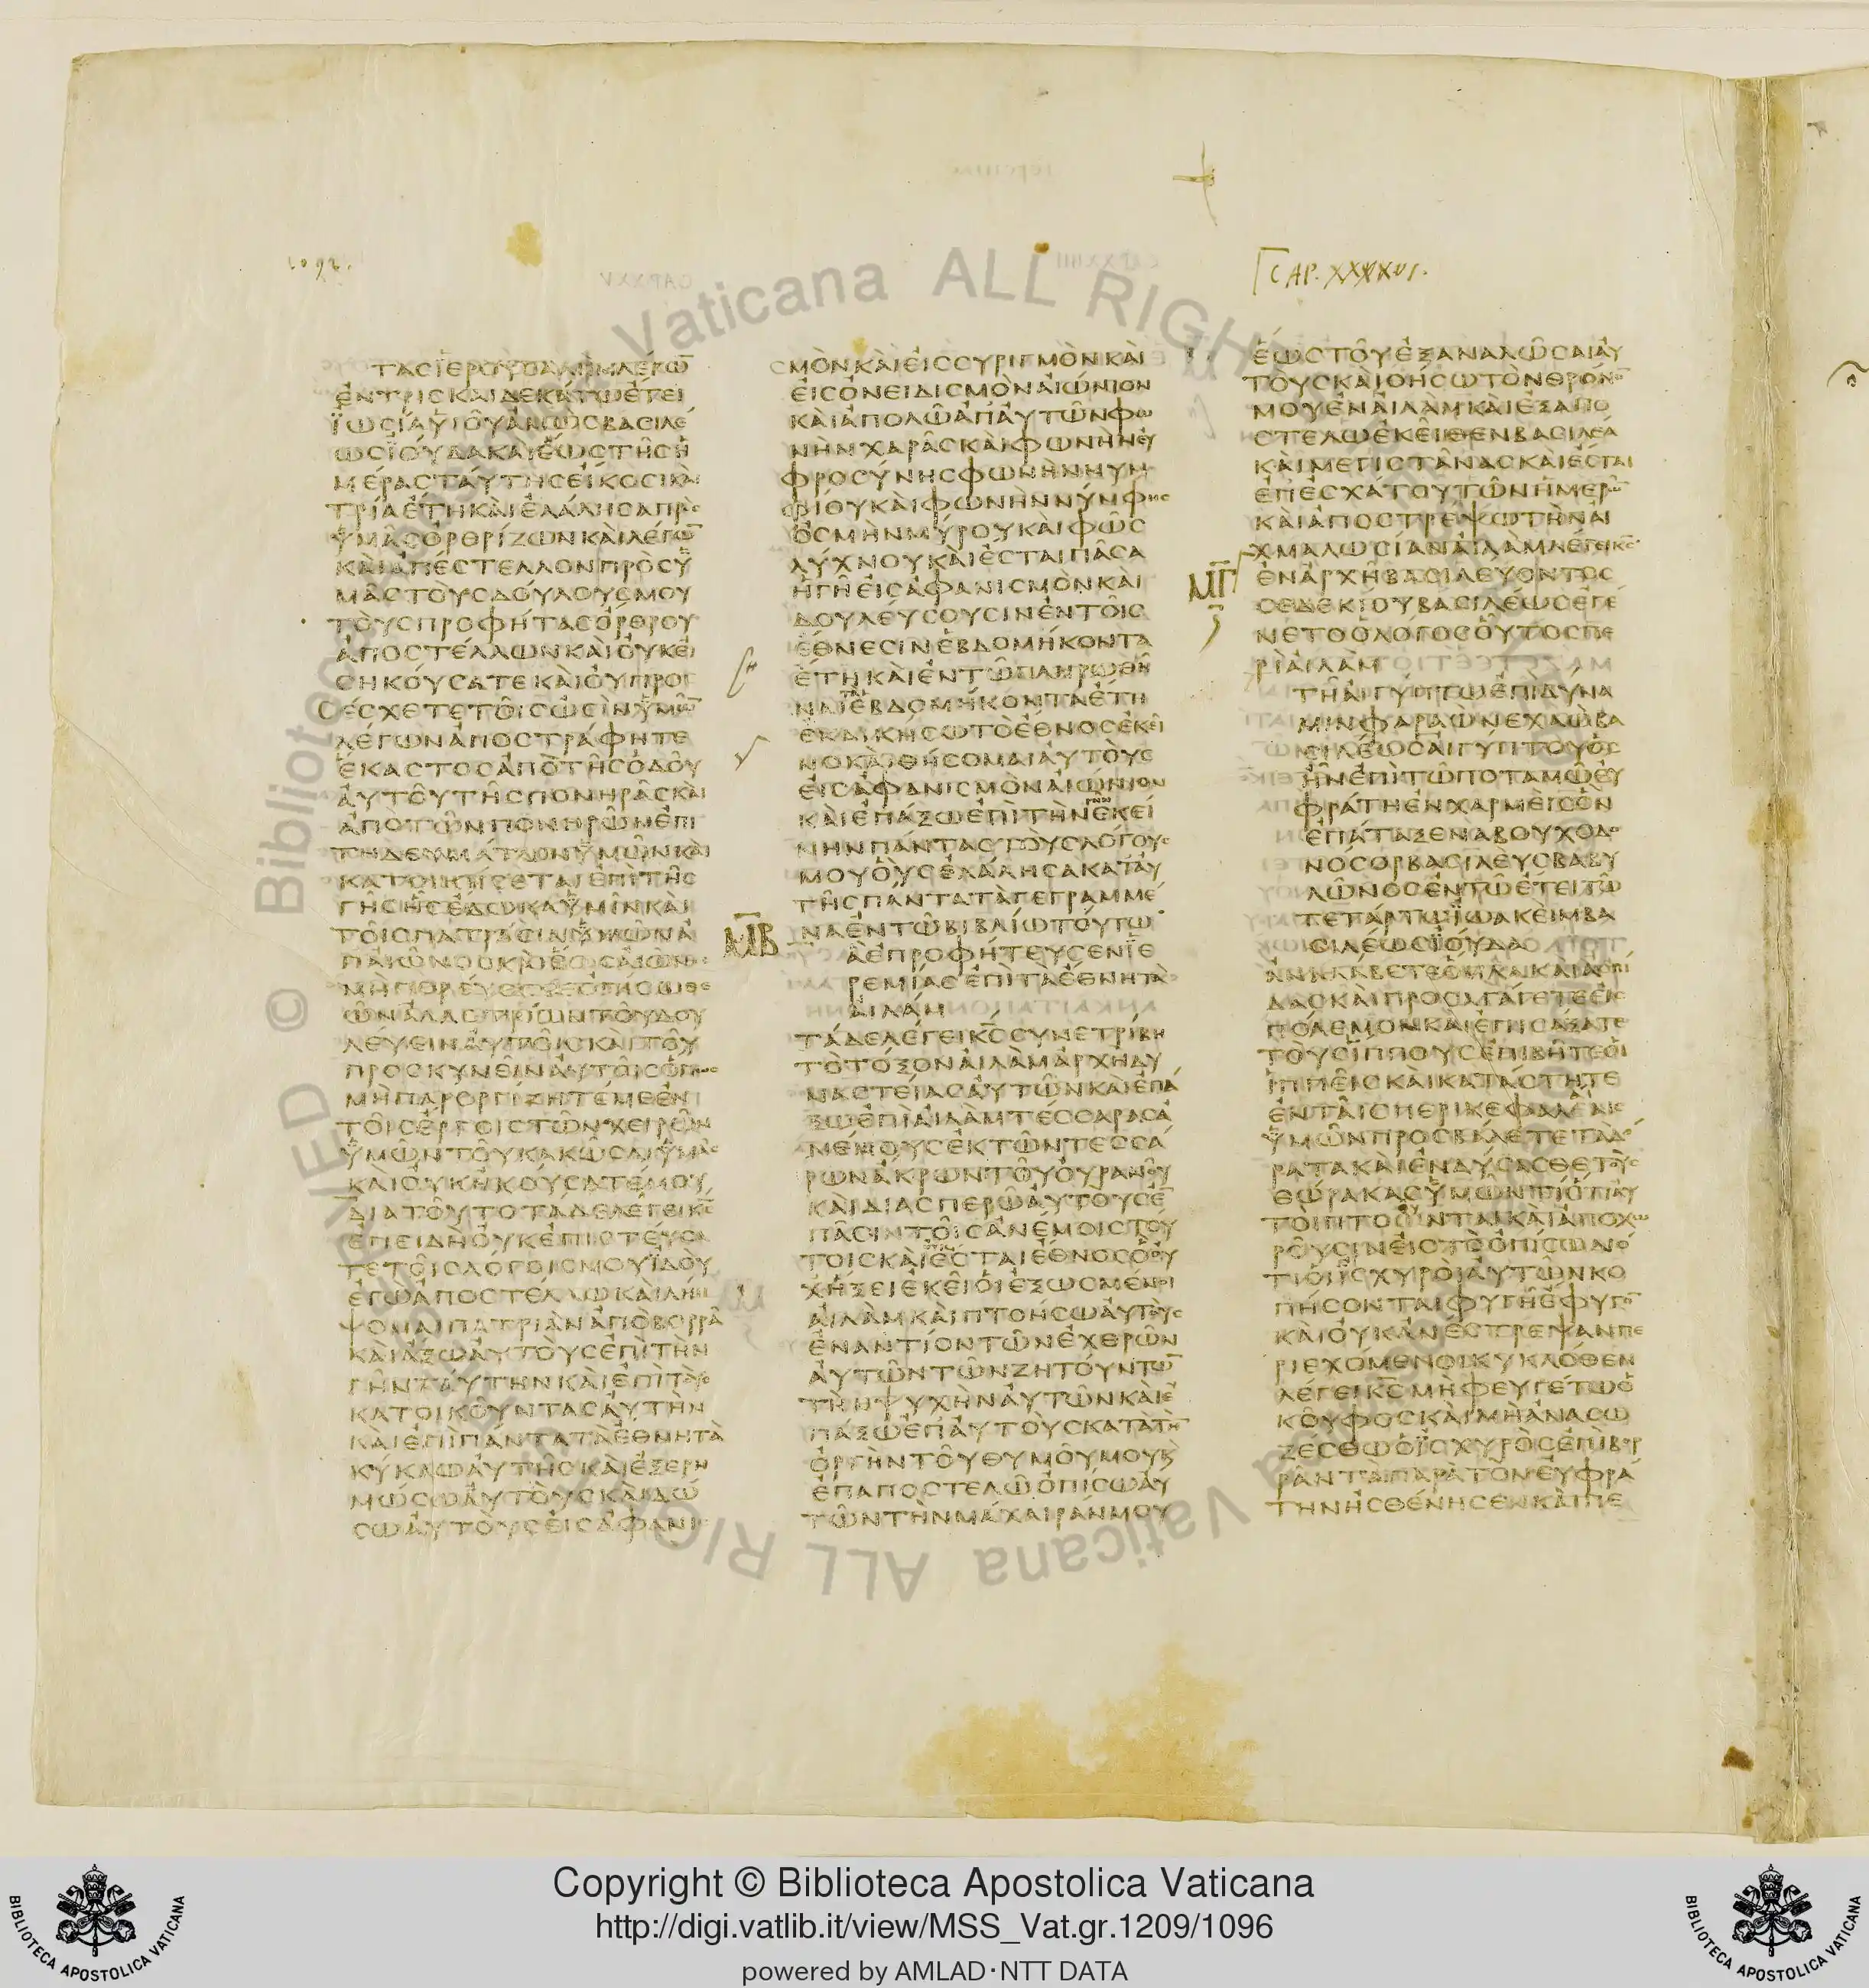 1092.
CAP. XXXXVI.
ΤΑΣ ΙΕΡΟΥΣΑΛΗΜ ΛΕΓΩ̅
ΕΝ ΤΡΙΣΚΑΙΔΕΚΑΤΩ ΕΤΕΙ
ΪΩΣΙΑ ΥΙΟΥ ΑΜΩΣ ΒΑΣΙΛΕ
ΩΣ ΪΟΥΔΑ ΚΑΙ ΕΩΣ ΤΗΣ Η
ΜΕΡΑΣ ΤΑΥΤΗΣ ΕΙΚΟΣΙ ΚΑΙ
ΤΡΙΑ ΕΤΗ ΚΑΙ ΕΛΑΛΗΣΑ ΠΡΟΣ
ΫΜΑΣ ΟΡΘΡΙΖΩΝ ΚΑΙ ΛΕΓΩ̅
ΚΑΙ ΑΠΕΣΤΕΛΛΟΝ ΠΡΟΣ Ϋ
ΜΑΣ ΤΟΥΣ ΔΟΥΛΟΥΣ ΜΟΥ
ΤΟΥΣ ΠΡΟΦΗΤΑΣ ΟΡΘΡΟΥ
ΑΠΟΣΤΕΛΛΩΝ ΚΑΙ ΟΥΚ ΕΙ
ΣΗΚΟΥΣΑΤΕ ΚΑΙ ΟΥ ΠΡΟ
ΣΕΣΧΕΤΕ ΤΟΙΣ ΩΣΙΝ ΫΜΩ̅
ΛΕΓΩΝ ΑΠΟΣΤΡΑΦΗΤΕ
ΕΚΑΣΤΟΣ ΑΠΟ ΤΗΣ ΟΔΟΥ
ΑΥΤΟΥ ΤΗΣ ΠΟΝΗΡΑΣ ΚΑΙ
ΑΠΟ ΤΩΝ ΠΟΝΗΡΩΝ ΕΠΙ
ΤΗΔΕΥΜΑΤΩΝ ΫΜΩΝ ΚΑΙ
ΚΑΤΟΙΚΗΣΕΤΑΙ ΕΠΙ ΤΗΣ
ΓΗΣ ΗΣ ΕΔΩΚΑ ΫΜΙΝ ΚΑΙ
ΤΟΙΣ ΠΑΤΡΑΣΙΝ ΫΜΩΝ Α
ΠΑΙΩΝΟΣ ΚΑΙ ΕΩΣ ΑΙΩΝΟΣ
ΜΗ ΠΟΡΕΥΕΣΘΕ ΟΠΙΣΩ ΘΕ
ΩΝ ΑΛΛΟΤΡΙΩΝ ΤΟΥ ΔΟΥ
ΛΕΥΕΙΝ ΑΥΤΟΙΣ ΚΑΙ ΤΟΥ
ΠΡΟΣΚΥΝΕΙΝ ΑΥΤΟΙΣ ΟΠΩΣ
ΜΗ ΠΑΡΟΡΓΙΖΗΤΕ ΜΕ ΕΝ
ΤΟΙΣ ΕΡΓΟΙΣ ΤΩΝ ΧΕΙΡΩΝ
ΫΜΩΝ ΤΟΥ ΚΑΚΩΣΑΙ ΫΜΑΣ
ΚΑΙ ΟΥΚ ΗΚΟΥΣΑΤΕ ΜΟΥ
ΔΙΑ ΤΟΥΤΟ ΤΑΔΕ ΛΕΓΕΙ Κ̅Σ̅
ΕΠΕΙΔΗ ΟΥΚ ΕΠΙΣΤΕΥΣΑ
ΤΕ ΤΟΙΣ ΛΟΓΟΙΣ ΜΟΥ ΪΔΟΥ
ΕΓΩ ΑΠΟΣΤΕΛΛΩ ΚΑΙ ΛΗΜ
ΨΟΜΑΙ ΠΑΤΡΙΑΝ ΑΠΟ ΒΟΡΡΑ
ΚΑΙ ΑΞΩ ΑΥΤΟΥΣ ΕΠΙ ΤΗΝ
ΓΗΝ ΤΑΥΤΗΝ ΚΑΙ ΕΠΙ ΤΟΥΣ
ΚΑΤΟΙΚΟΥΝΤΑΣ ΑΥΤΗΝ
ΚΑΙ ΕΠΙ ΠΑΝΤΑ ΤΑ ΕΘΝΗ ΤΑ
ΚΥΚΛΩ ΑΥΤΗΣ ΚΑΙ ΕΞΕΡΗ
ΜΩΣΩ ΑΥΤΟΥΣ ΚΑΙ ΔΩ
ΣΩ ΑΥΤΟΥΣ ΕΙΣ ΑΦΑΝΙ
ΣΜΟΝ ΚΑΙ ΕΙΣ ΣΥΡΙΓΜΟΝ ΚΑΙ
ΕΙΣ ΟΝΕΙΔΙΣΜΟΝ ΑΙΩΝΙΟΝ
ΚΑΙ ΑΠΟΛΩ ΑΠ ΑΥΤΩΝ ΦΩ
ΝΗΝ ΧΑΡΑΣ ΚΑΙ ΦΩΝΗΝ ΕΥ
ΦΡΟΣΥΝΗΣ ΦΩΝΗΝ ΝΥΜ
ΦΙΟΥ ΚΑΙ ΦΩΝΗΝ ΝΥΜΦΗΣ
ΟΣΜΗΝ ΜΥΡΟΥ ΚΑΙ ΦΩΣ
ΛΥΧΝΟΥ ΚΑΙ ΕΣΤΑΙ ΠΑΣΑ
Η ΓΗ ΕΙΣ ΑΦΑΝΙΣΜΟΝ ΚΑΙ
ΔΟΥΛΕΥΣΟΥΣΙΝ ΕΝ ΤΟΙΣ
ΕΘΝΕΣΙΝ ΕΒΔΟΜΗΚΟΝΤΑ
ΕΤΗ ΚΑΙ ΕΝ ΤΩ ΠΛΗΡΩΘΗ
ΝΑΙ ΤΑ ΕΒΔΟΜΗΚΟΝΤΑ ΕΤΗ
ΕΚΔΙΚΗΣΩ ΤΟ ΕΘΝΟΣ ΕΚΕΙ
ΝΟ ΚΑΙ ΘΗΣΟΜΑΙ ΑΥΤΟΥΣ
ΕΙΣ ΑΦΑΝΙΣΜΟΝ ΑΙΩΝΙΟΝ
ΚΑΙ ΕΠΑΞΩ ΕΠΙ ΤΗΝ ΓΗΝ ΕΚΕΙ
ΝΗΝ ΠΑΝΤΑΣ ΤΟΥΣ ΛΟΓΟΥΣ
ΜΟΥ ΟΥΣ ΕΛΑΛΗΣΑ ΚΑΤ ΑΥ
ΤΗΣ ΠΑΝΤΑ ΤΑ ΓΕΓΡΑΜΜΕ
ΝΑ ΕΝ ΤΩ ΒΙΒΛΙΩ ΤΟΥΤΩ
Μ̅Β̅
Α ΕΠΡΟΦΗΤΕΥΣΕΝ ΪΕ
ΡΕΜΙΑΣ ΕΠΙ ΤΑ ΕΘΝΗ ΤΑ
ΑΙΛΑΜ
ΤΑΔΕ ΛΕΓΕΙ Κ̅Σ̅ ΣΥΝΕΤΡΙΒΗ
ΤΟ ΤΟΞΟΝ ΑΙΛΑΜ ΑΡΧΗ ΔΥ
ΝΑΣΤΕΙΑΣ ΑΥΤΩΝ ΚΑΙ ΕΠΑ
ΞΩ ΕΠΙ ΑΙΛΑΜ ΤΕΣΣΑΡΑΣ Α
ΝΕΜΟΥΣ ΕΚ ΤΩΝ ΤΕΣΣΑ
ΡΩΝ ΑΚΡΩΝ ΤΟΥ ΟΥΡΑΝΟΥ
ΚΑΙ ΔΙΑΣΠΕΡΩ ΑΥΤΟΥΣ Ε̅
ΠΑΣΙΝ ΤΟΙΣ ΑΝΕΜΟΙΣ ΤΟΥ
ΤΟΙΣ ΚΑΙ ΕΣΤΑΙ ΕΘΝΟΣ Ο ΟΥ
Χ ΗΞΕΙ ΕΚΕΙ ΟΙ ΕΞΩΣΜΕΝΟΙ
ΑΙΛΑΜ ΚΑΙ ΠΤΟΗΣΩ ΑΥΤΟΥΣ
ΕΝΑΝΤΙΟΝ ΤΩΝ ΕΧΘΡΩΝ
ΑΥΤΩΝ ΤΩΝ ΖΗΤΟΥΝΤΩ̅
ΤΗΝ ΨΥΧΗΝ ΑΥΤΩΝ ΚΑΙ Ε
ΠΑΞΩ ΕΠ ΑΥΤΟΥΣ ΚΑΤΑ ΤΗΝ
ΟΡΓΗΝ ΤΟΥ ΘΥΜΟΥ ΜΟΥ Κ
ΕΠΑΠΟΣΤΕΛΩ ΟΠΙΣΩ ΑΥ
ΤΩΝ ΤΗΝ ΜΑΧΑΙΡΑΝ ΜΟΥ
ΕΩΣ ΤΟΥ ΕΞΑΝΑΛΩΣΑΙ ΑΥ
ΤΟΥΣ ΚΑΙ ΘΗΣΩ ΤΟΝ ΘΡΟΝΟ̅
ΜΟΥ ΕΝ ΑΙΛΑΜ ΚΑΙ ΕΞΑΠΟ
ΣΤΕΛΩ ΕΚΕΙΘΕΝ ΒΑΣΙΛΕΑ
ΚΑΙ ΜΕΓΙΣΤΑΝΑΣ ΚΑΙ ΕΣΤΑΙ
ΕΠ ΕΣΧΑΤΟΥ ΤΩΝ ΗΜΕΡΩ̅
ΚΑΙ ΑΠΟΣΤΡΕΨΩ ΤΗΝ ΑΙ
ΧΜΑΛΩΣΙΑΝ ΑΙΛΑΜ ΛΕΓΕΙ Κ̅Σ̅
Μ̅Γ̅
ΕΝ ΑΡΧΗ ΒΑΣΙΛΕΥΟΝΤΟΣ
ΣΕΔΕΚΙΟΥ ΒΑΣΙΛΕΩΣ ΕΓΕ
ΝΕΤΟ Ο ΛΟΓΟΣ ΟΥΤΟΣ ΠΕ
ΡΙ ΑΙΛΑΜ
ΤΗ ΑΙΓΥΠΤΩ ΕΠΙ ΔΥΝΑ
ΜΙΝ ΦΑΡΑΩ ΝΕΧΑΩ ΒΑ
ΣΙΛΕΩΣ ΑΙΓΥΠΤΟΥ ΟΣ
ΗΝ ΕΠΙ ΤΩ ΠΟΤΑΜΩ ΕΥ
ΦΡΑΤΗ ΕΝ ΧΑΡΜΕΙΣ ΟΝ
ΕΠΑΤΑΞΕ ΝΑΒΟΥΧΟΔΟ
ΝΟΣΟΡ ΒΑΣΙΛΕΥΣ ΒΑΒΥ
ΛΩΝΟΣ ΕΝ ΤΩ ΕΤΕΙ ΤΩ
ΤΕΤΑΡΤΩ ΪΩΑΚΕΙΜ ΒΑ
ΣΙΛΕΩΣ ΪΟΥΔΑ
ΑΝΑΛΑΒΕΤΕ ΟΠΛΑ ΚΑΙ ΑΣΠΙ
ΔΑΣ ΚΑΙ ΠΡΟΣΑΓΑΓΕΤΕ ΕΙΣ
ΠΟΛΕΜΟΝ ΚΑΙ ΕΠΙΣΑΞΑΤΕ
ΤΟΥΣ ΪΠΠΟΥΣ ΕΠΙΒΗΤΕ ΟΙ
ΪΠΠΕΙΣ ΚΑΙ ΚΑΤΑΣΤΗΤΕ
ΕΝ ΤΑΙΣ ΠΕΡΙΚΕΦΑΛΑΙΑΙΣ
ΫΜΩΝ ΠΡΟΣΒΑΛΕΤΕ ΤΑ ΔΟ
ΡΑΤΑ ΚΑΙ ΕΝΔΥΣΑΣΘΕ ΤΟΥΣ
ΘΩΡΑΚΑΣ ΫΜΩΝ ΤΙ ΟΤΙ ΑΥ
ΤΟΙ ΠΤΟΟΥΝΤΑΙ ΚΑΙ ΑΠΟΧΩ
ΡΟΥΣΙΝ ΕΙΣ ΤΟ ΟΠΙΣΩ ΔΙΟ
ΤΙ ΟΙ ΪΣΧΥΡΟΙ ΑΥΤΩΝ ΚΟ
ΠΗΣΟΝΤΑΙ ΦΥΓΗ ΕΦΥΓΟ̅
ΚΑΙ ΟΥΚ ΑΝΕΣΤΡΕΨΑΝ ΠΕ
ΡΙΕΧΟΜΕΝΟΙ ΚΥΚΛΟΘΕΝ
ΛΕΓΕΙ Κ̅Σ̅ ΜΗ ΦΕΥΓΕΤΩ Ο
ΚΟΥΦΟΣ ΚΑΙ ΜΗ ΑΝΑΣΩ
ΖΕΣΘΩ Ο ΪΣΧΥΡΟΣ ΕΠΙ ΒΟΡ
ΡΑΝ ΤΑ ΠΑΡΑ ΤΟΝ ΕΥΦΡΑ
ΤΗΝ ΗΣΘΕΝΗΣΕΝ ΚΑΙ ΠΕ
Copyright © Biblioteca Apostolica Vaticana
http://digi.vatlib.it/view/MSS_Vat.gr.1209/1096
powered by AMLAD·NTT DATA
BIBLIOTECA APOSTOLICA VATICANA
BIBLIOTECA APOSTOLICA VATICANA